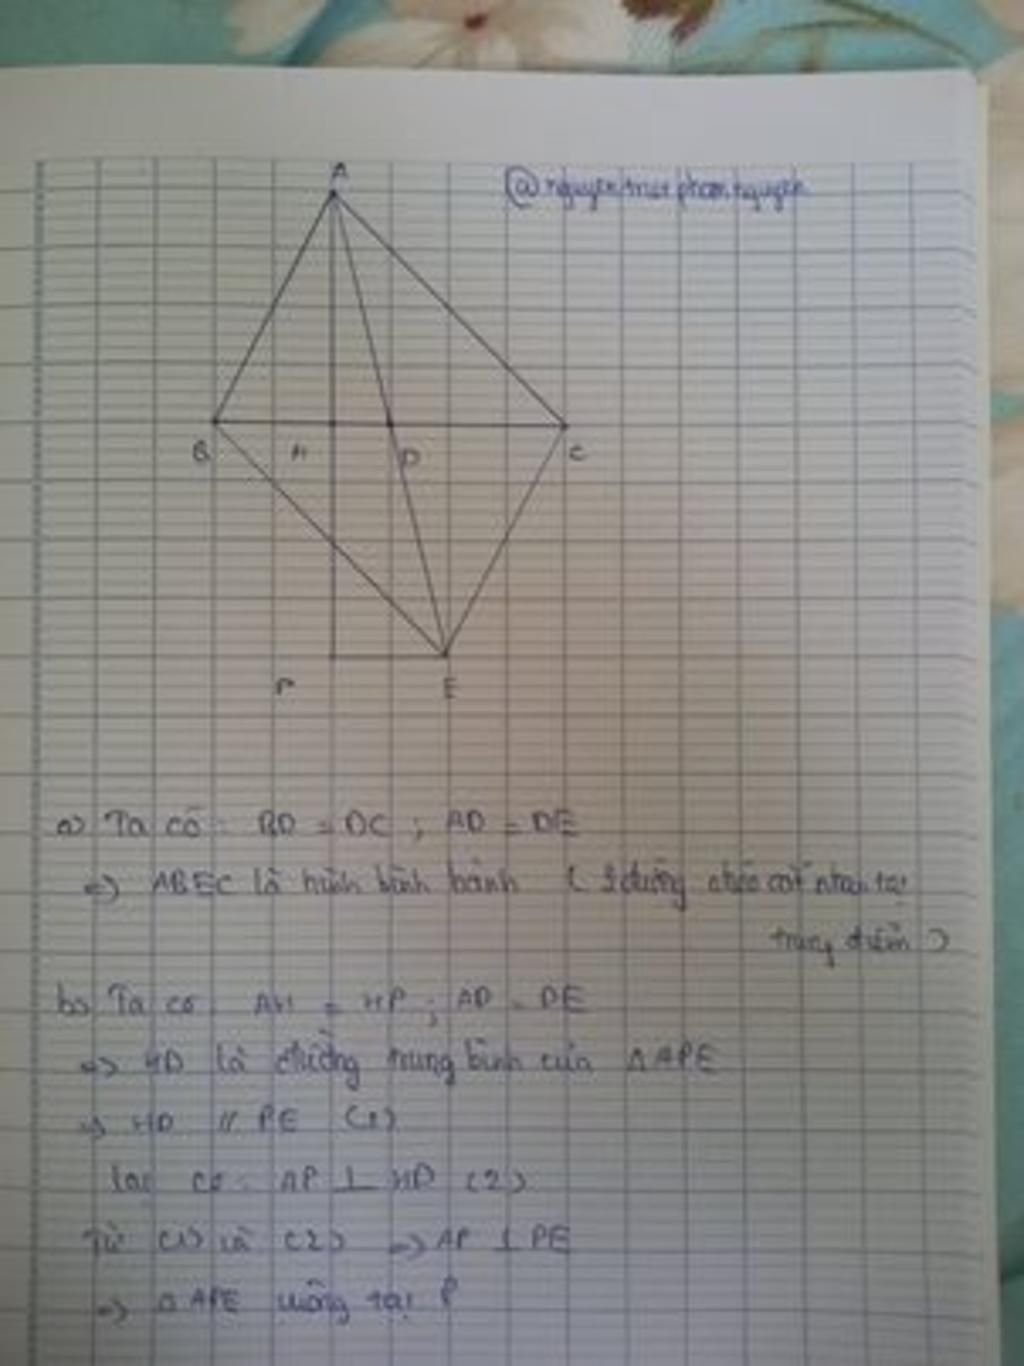 A
B
H
D
C
P
E
a) Ta có: BD = DC ; AD = DE
=> ABEC là hình bình hành ( 2 đường chéo cắt nhau tại
trung điểm )
b) Ta có: AH = HP ; AD = DE
=> HD là đường trung bình của △APE
=> HD // PE (1)
Lại có: AP ⊥ HD (2)
Từ (1) và (2) => AP ⊥ PE
=> △APE vuông tại P